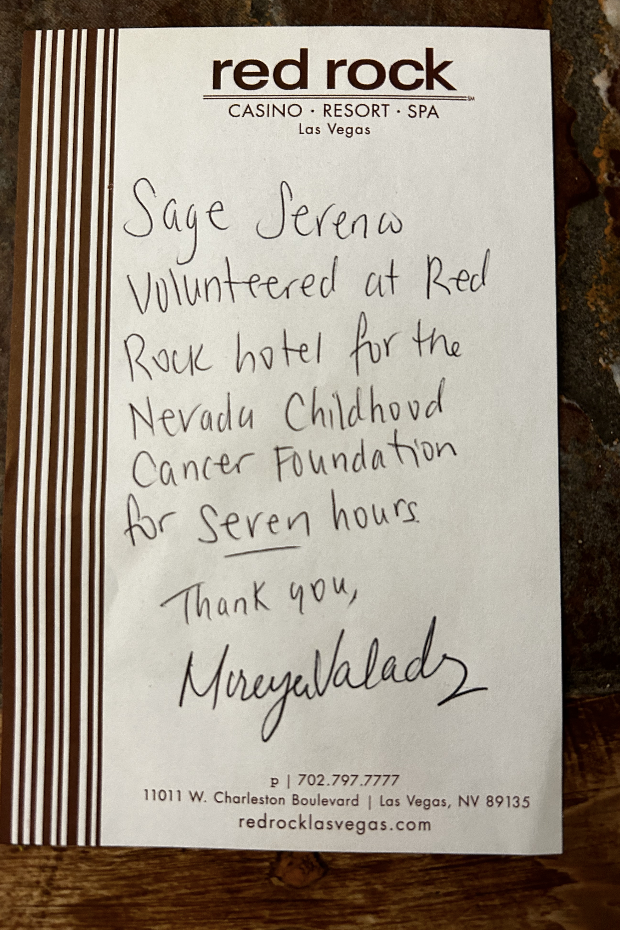 red rock
CASINO · RESORT · SPA
Las Vegas
Sage Sereno
Volunteered at Red
Rock hotel for the
Nevada Childhood
Cancer Foundation
for seven hours.
Thank you,
Mireya Valadz
p | 702.797.7777
11011 W. Charleston Boulevard | Las Vegas, NV 89135
redrocklasvegas.com